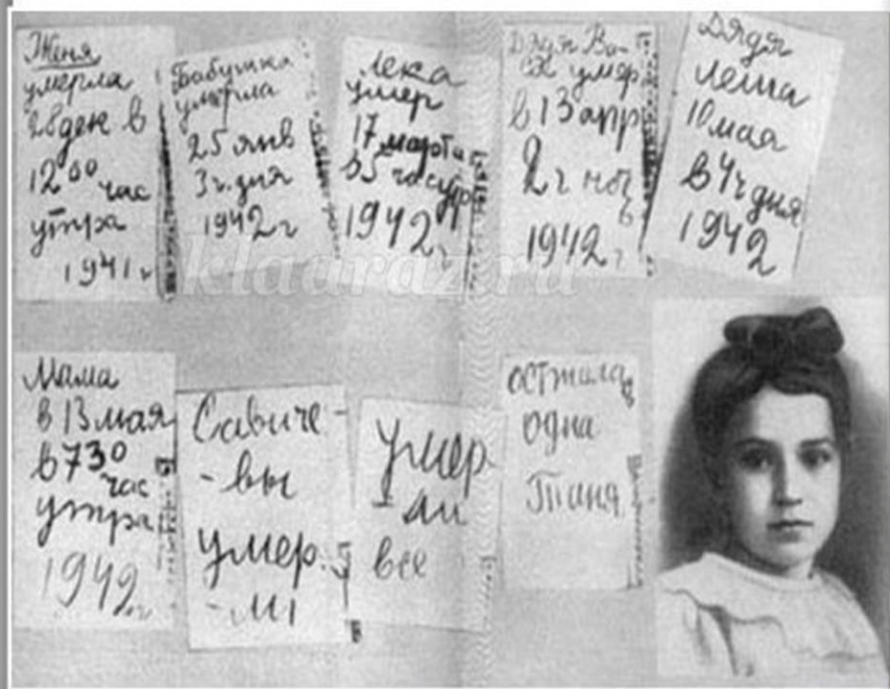 Женя
умерла
28 дек в
12 00 час
утра
1941 г
Бабушка
умерла
25 янв
3 ч. дня
1942 г
Лека
умер
17 марта
в 5 час утр
1942 г
Дядя Ва-
ся умер
в 13 апр
2 ч ноч
1942 г
Дядя
Леша
10 мая
в 4 ч дня
1942
Мама
в 13 мая
в 7 30
час
утра
1942 г
Савиче-
-вы
умер.
-ли
умер
-ли
все
осталась
одна
Таня
klaaraz.ru